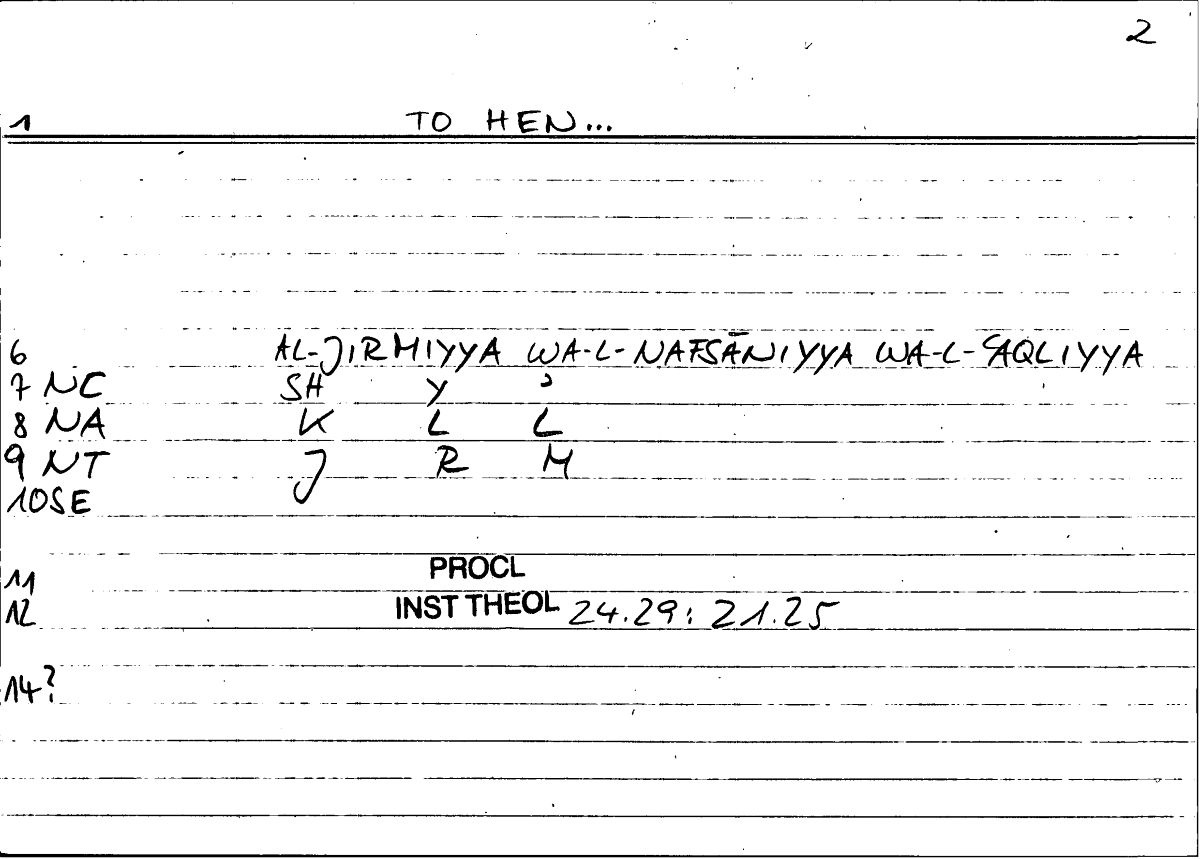 2
1 TO HEN...
6 AL-JIRMIYYA WA-L-NAFSĀNIYYA WA-L-ʿAQLIYYA
7 NC SH Y ʾ
8 NA K L L
9 NT J R M
10SE
11 PROCL
12 INST THEOL 24.29: 21.25
14?